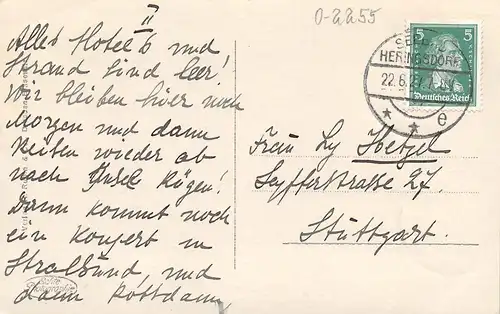 II
0-2255
Alles Hotels und
Strand sind leer!
Wir bleiben hier noch
Morgen und dann
Reisen wieder ab
nach Insel Rügen!
Dann kommt noch
ein Konzert in
Stralsund, und
dann Pottdam
5 5
Deutsches Reich
HERINGSDORF
22.6.27.7
e
Frau Ly Hetzel
Seyfferstraße 27.
Stuttgart.